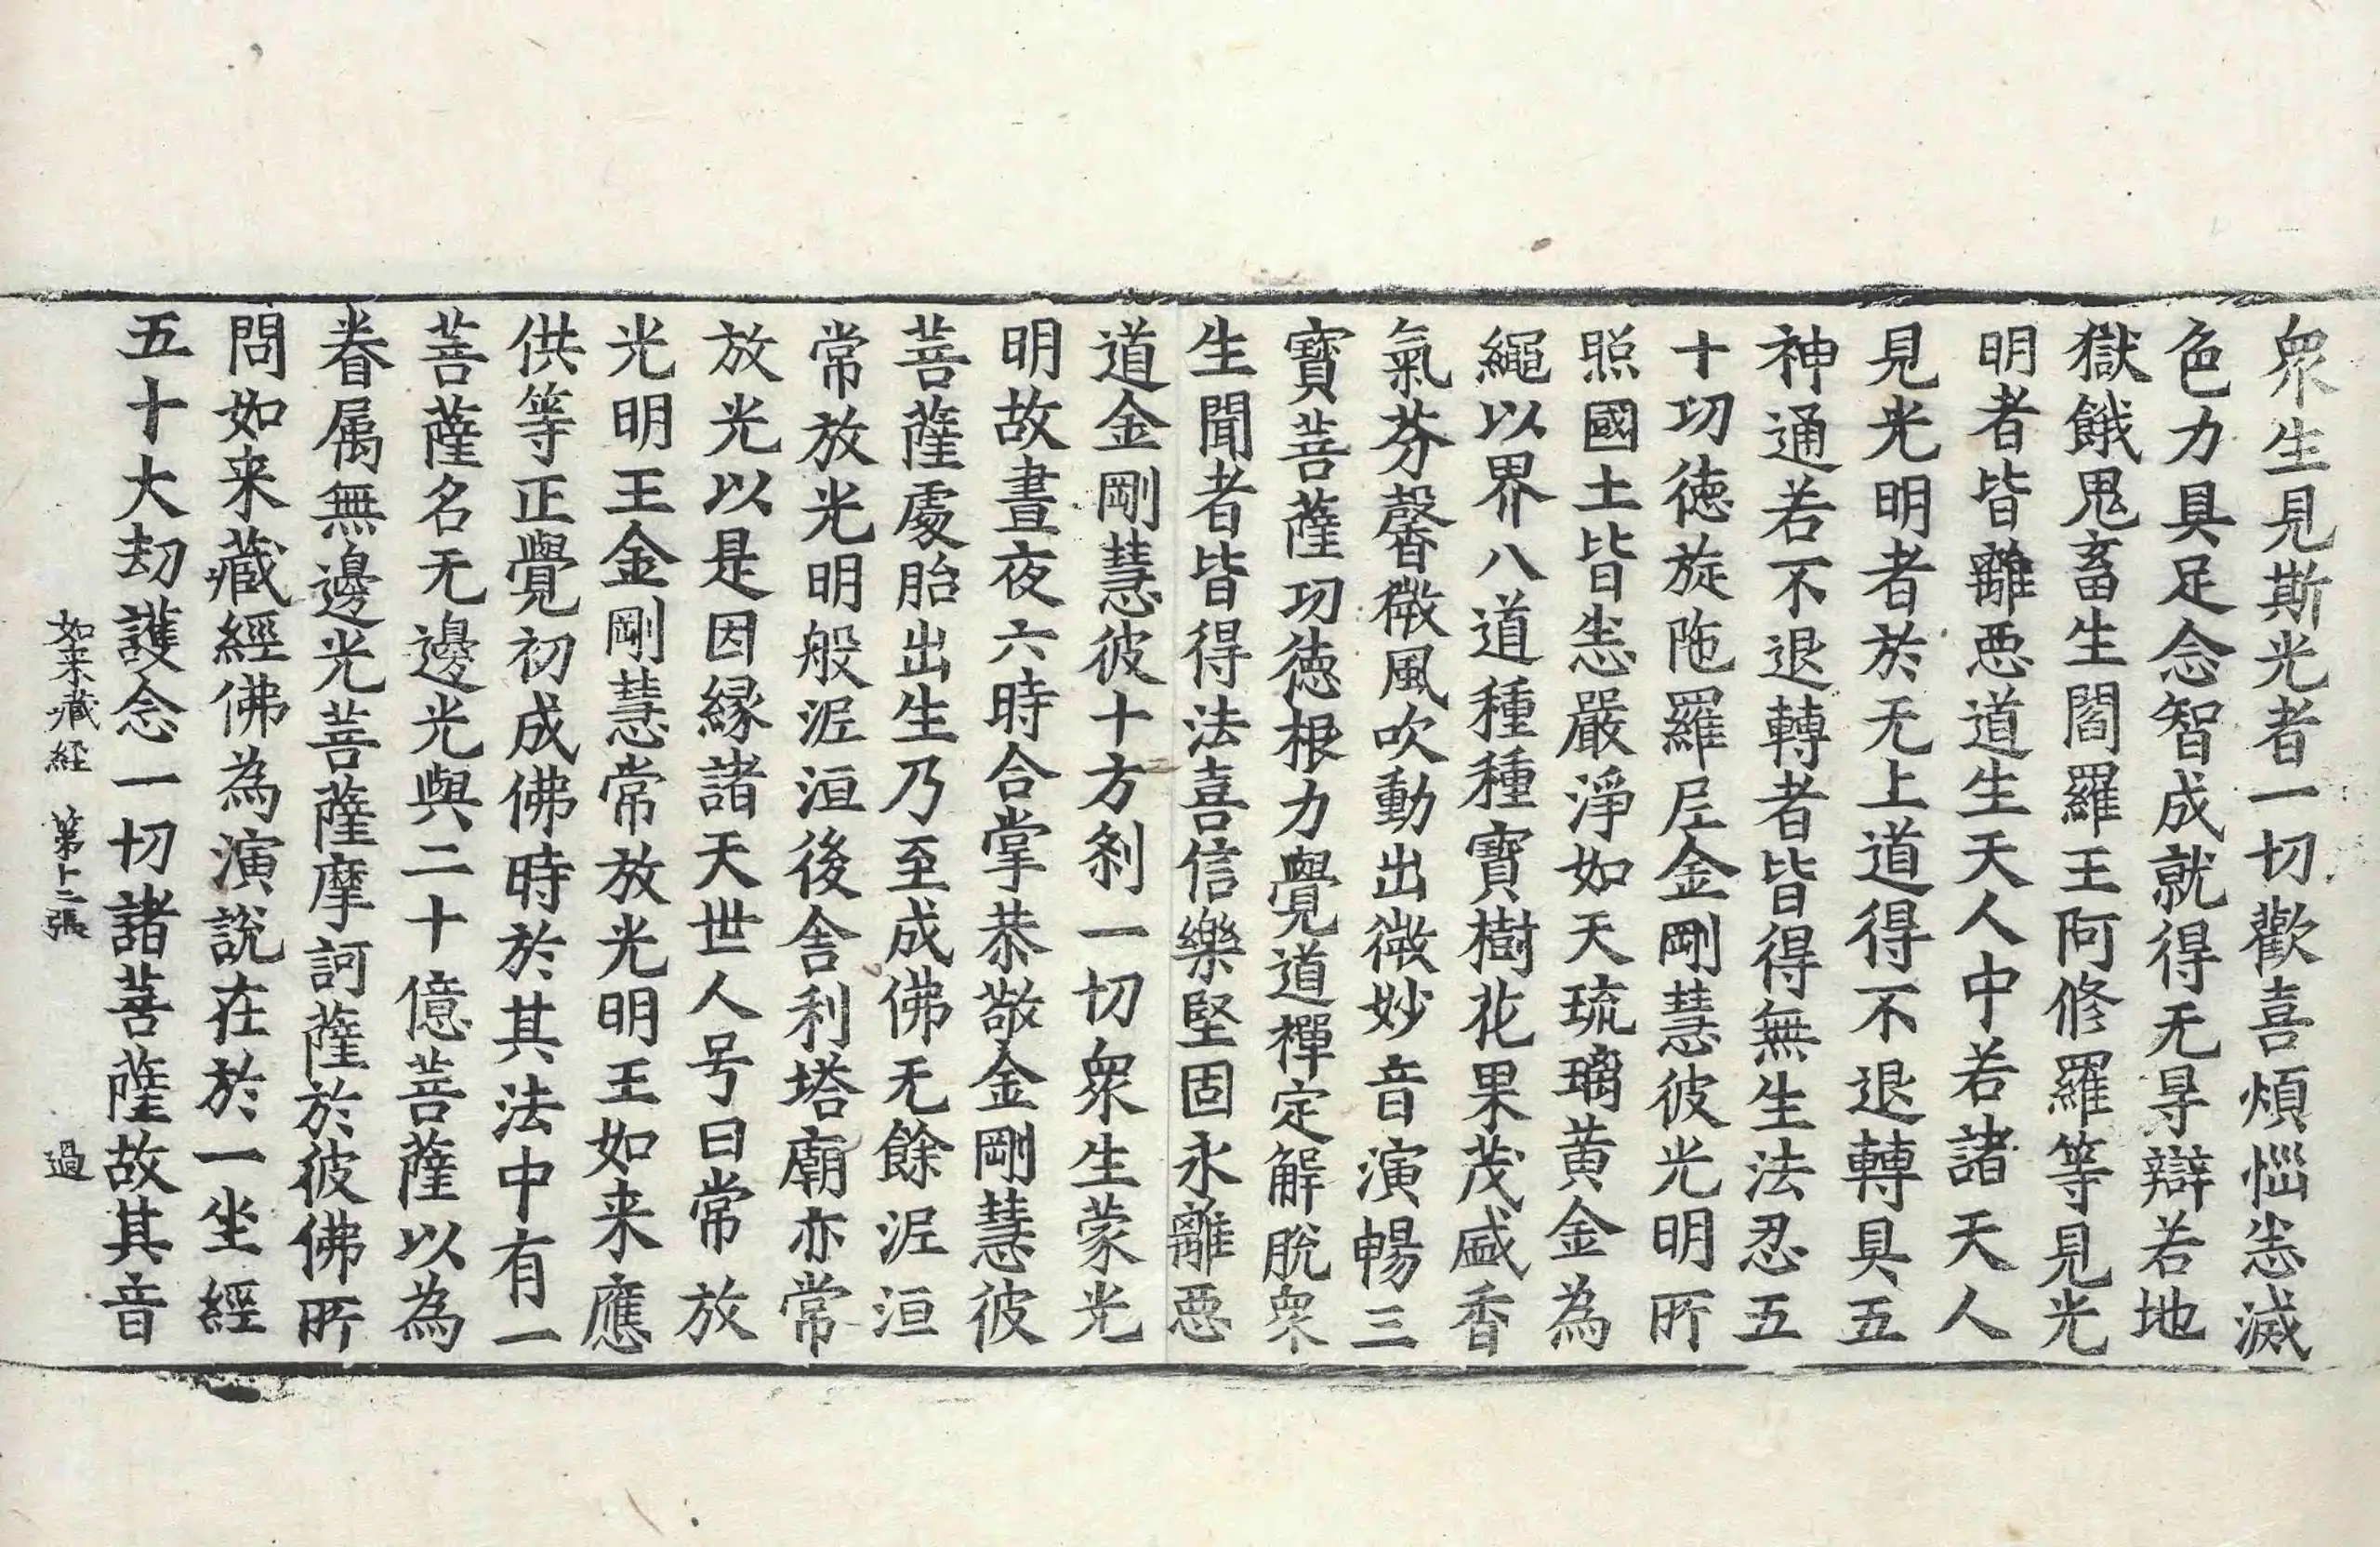 衆生見斯光者一切歡喜煩惱悉滅
色力具足念智成就得无㝵辯若地
獄餓鬼畜生閻羅王阿修羅等見光
明者皆離悪道生天人中若諸天人
見光明者於无上道得不退轉具五
神通若不退轉者皆得無生法忍五
十功徳旋陁羅尼金剛慧彼光明所
照國土皆悉嚴淨如天琉璃黄金為
繩以界八道種種寶樹花果茂盛香
氣芬馨微風吹動出微妙音演暢三
寶菩薩功徳根力覺道禪定解脫衆
生聞者皆得法喜信樂堅固永離悪
道金剛慧彼十方刹一切衆生蒙光
明故晝夜六時合掌恭敬金剛慧彼
菩薩處胎出生乃至成佛无餘泥洹
常放光明般泥洹後舎利塔廟亦常
放光以是因縁諸天世人号曰常放
光明王金剛慧常放光明王如来應
供等正覺初成佛時於其法中有一
菩薩名无邊光與二十億菩薩以為
眷属無邊光菩薩摩訶薩於彼佛所
問如来藏經佛為演說在於一坐經
五十大劫護念一切諸菩薩故其音
如来藏經 第十二張 過